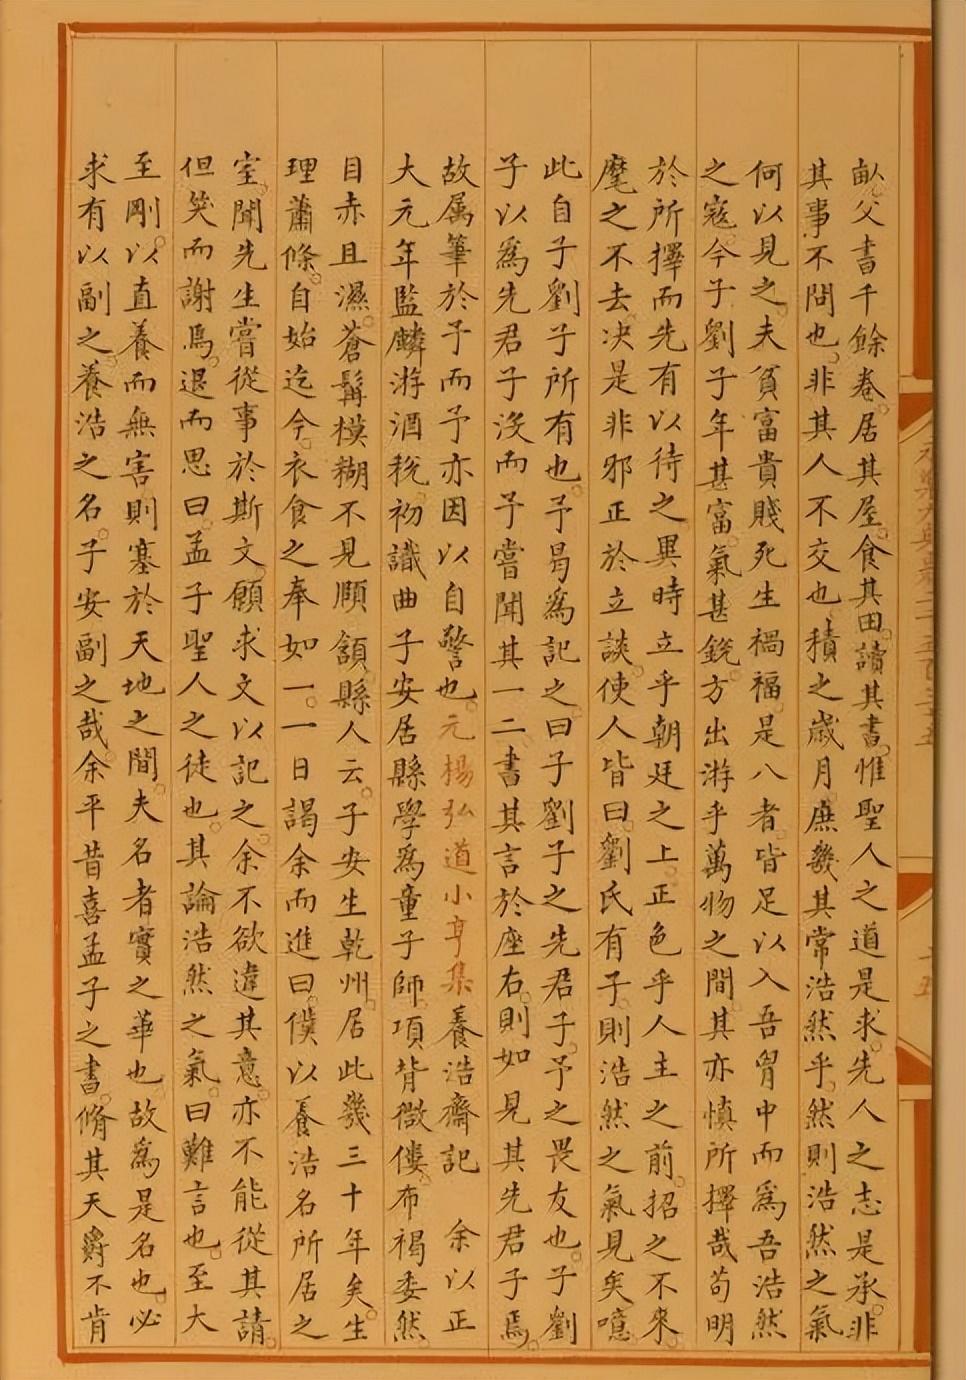 畝父書千餘卷居其屋食其田讀其書惟聖人之道是求先人之志是承非
其事不問也非其人不交也積之歲月庶幾其常浩然乎然則浩然之氣
何以見之夫貧富貴賤死生禍福是八者皆足以入吾胷中而爲吾浩然
之寇今子劉子年甚富氣甚銳方出游乎萬物之間其亦慎所擇哉苟明
於所擇而先有以待之異時立乎朝廷之上正色乎人主之前招之不來
麾之不去决是非邪正於立談使人皆曰劉氏有子則浩然之氣見矣噫
此自子劉子所有也予曷爲記之曰子劉子之先君子予之畏友也子劉
子以爲先君子沒而予嘗聞其一二書其言於座右則如見其先君子焉
故属筆於予而予亦因以自警也元楊弘道小亨集養浩齋記 余以正
大元年監麟游酒稅初識曲子安居縣學爲童子師項背微僂布褐委然
目赤且濕蒼髯模糊不見頤頷縣人云子安生乾州居此幾三十年矣生
理蕭條自始迄今衣食之奉如一一日謁余而進曰僕以養浩名所居之
室聞先生嘗從事於斯文願求文以記之余不欲違其意亦不能從其請
但笑而謝焉退而思曰孟子聖人之徒也其論浩然之氣曰難言也至大
至剛以直養而無害則塞於天地之間夫名者實之華也故爲是名也必
求有以副之養浩之名子安副之哉余平昔喜孟子之書脩其天爵不肯